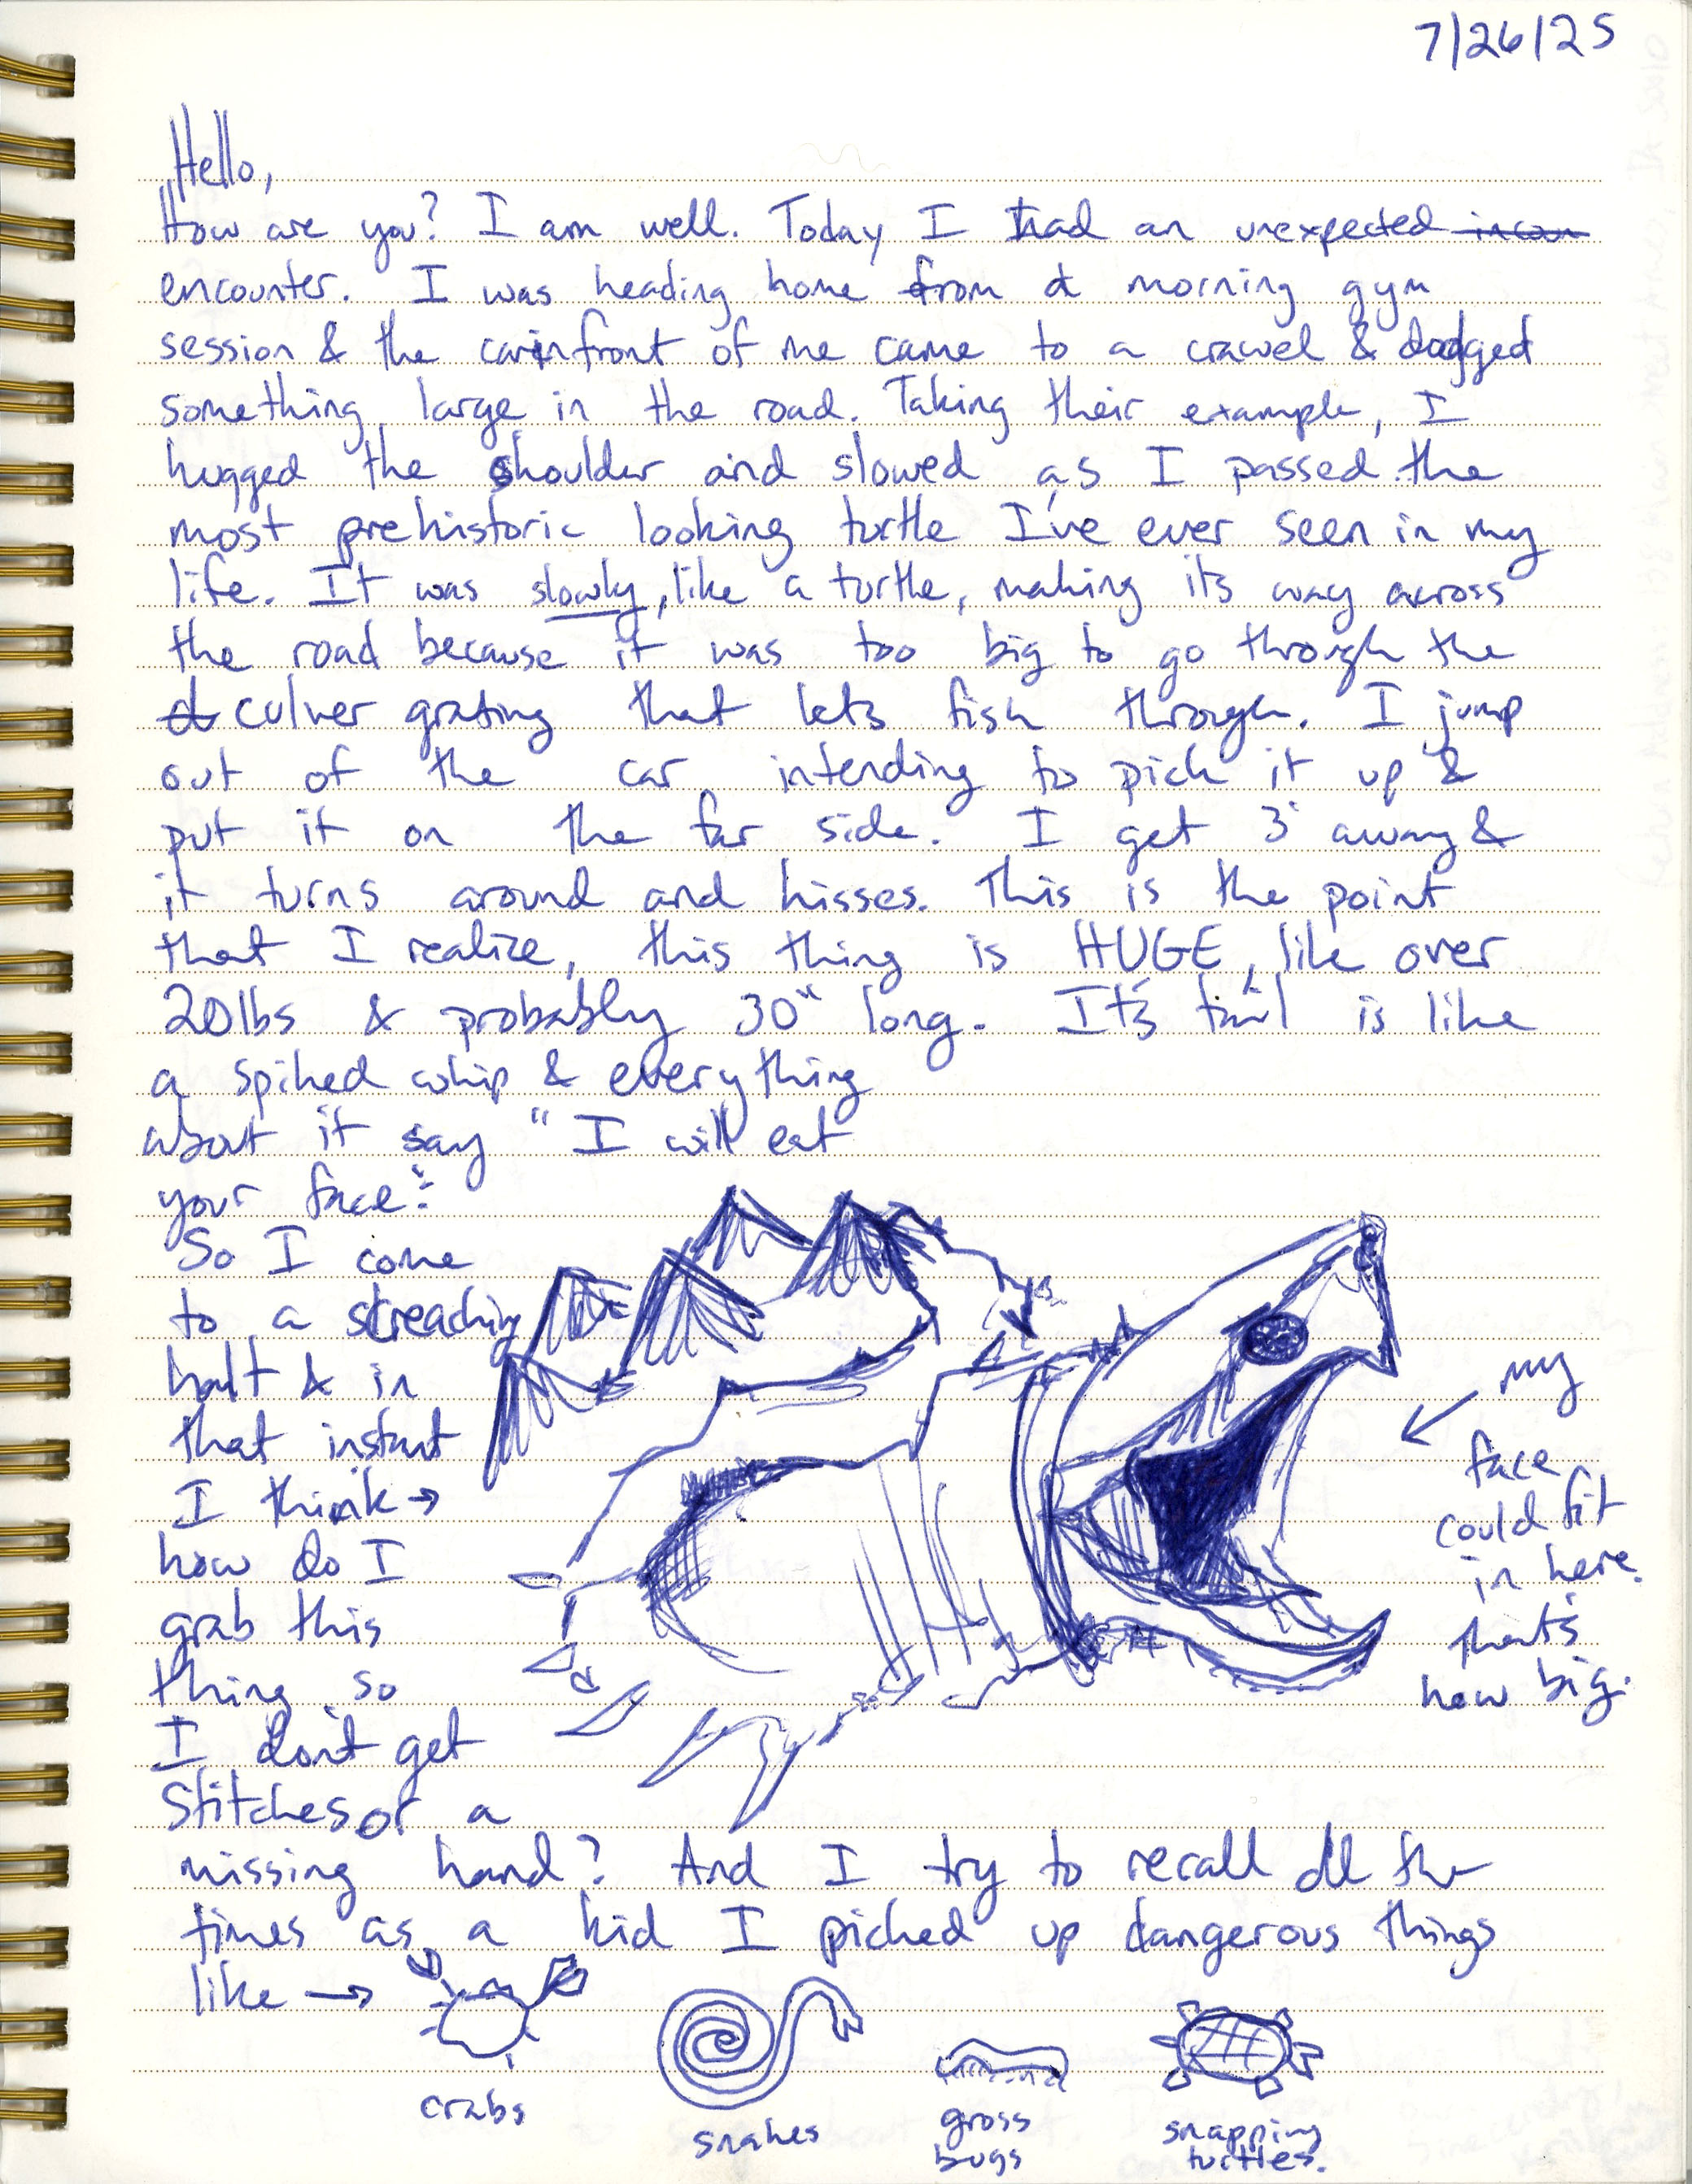 7/26/25
Hello,
How are you? I am well. Today I had an unexpected
encounter. I was heading home from a morning gym
session & the car in front of me came to a crawel & dodged
something large in the road. Taking their example, I
hugged the shoulder and slowed as I passed the
most prehistoric looking turtle I've ever seen in my
life. It was slowly, like a turtle, making its way across
the road because it was too big to go through the
culver grating that lets fish through. I jump
out of the car intending to pick it up &
put it on the far side. I get 3' away &
it turns around and hisses. This is the point
that I realize, this thing is HUGE, like over
20lbs & probably 30" long. It's tail is like
a spiked whip & everything
about it say "I will eat
your face."
So I come
to a streaching
halt & in
that instant
I think →
how do I
grab this
thing so
I don't get
stitches or a
missing hand? And I try to recall all the
times as a kid I picked up dangerous things
like →
my
face
could fit
in here.
that's
how big.
crabs
snakes
gross
bugs
snapping
turtles.